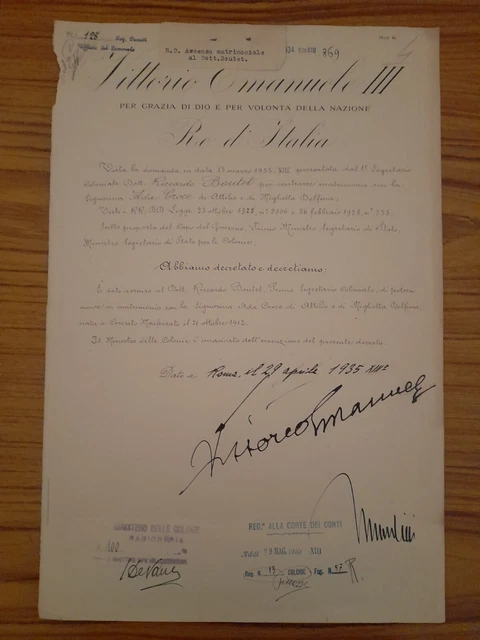 128 Reg. Decreti
R.D. Assenso matrimoniale
al Dott. Boutet.
869
Vittorio Emanuele III
PER GRAZIA DI DIO E PER VOLONTÀ DELLA NAZIONE
Re d'Italia
Vista la domanda in data 13 marzo 1935-XIII presentata dal 1° Segretario
Coloniale Dott. Riccardo Boutet per contrarre matrimonio con la
Signorina Ada Croce di Attilio e di Mighetta Delfina;
Visti i RR. DD. Legge 23 ottobre 1925, n° 2006 e 26 febbraio 1928, n° 355;
Sulla proposta del Capo del Governo, Primo Ministro Segretario di Stato,
Ministro Segretario di Stato per le Colonie;
Abbiamo decretato e decretiamo:
È dato assenso al Dott. Riccardo Boutet, Primo Segretario Coloniale, di potersi
unire in matrimonio con la Signorina Ada Croce di Attilio e di Mighetta Delfina,
nata a Cossato Monferrato il 21 ottobre 1912.
Il Ministro delle Colonie è incaricato dell'esecuzione del presente decreto.
Dato a Roma, il 29 aprile 1935 XIII°
Vittorio Emanuele
MINISTERO DELLE COLONIE
RAGIONERIA
100
REG.° ALLA CORTE DEI CONTI
Mussolini
MAG. 1935 XIII
Reg. N. 13 COLONIE Fog. N. 57